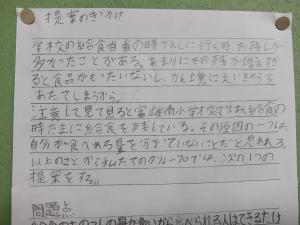 提案のきっかけ
学校の給食当番の時かえしに行く時、お残しが
多かったことがある。あまりにもお残しが増えす
ぎると食品がもったいないし、かん境にえいきょうを
あたてしまうから。
注意して見て見ると富雄南小学校でも給食の
時だまに給食をお残している。その原因の一つは
自分が食べれる量を分かっていないことだと思われる
以上のことから私たちのグループでは、次の1つの
提案をする。
問題点